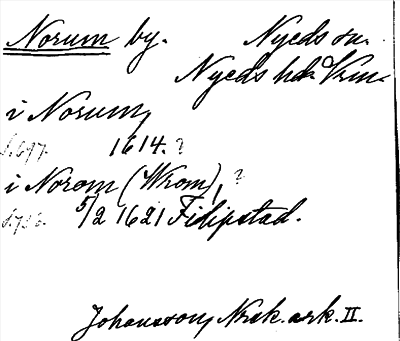 Norum by. Nyeds sn.
Nyeds hd. Vrm.
i Norum,
s. 697. 1614. ?
i Norom (Wrom), ?
s. 756. 5/2 1621 Filipstad.
Johansson, Norsk. ark. II.